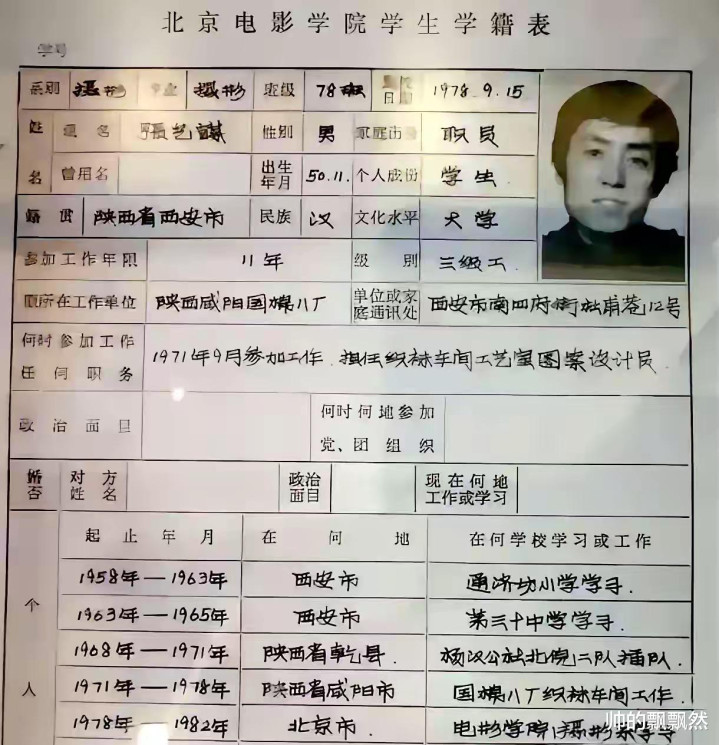 北京电影学院学生学籍表
学号
系别 摄影 专业 摄影 班级 78班 日期 1978.9.15
姓名 姓名 張艺謀 性别 男 家庭出身 职员
曾用名 出生年月 50.11. 个人成份 学生
籍贯 陕西省西安市 民族 汉 文化水平 大学
参加工作年限 11年 级别 三级工
原所在工作单位 陕西咸阳国棉八厂 单位或家庭通讯处 西安市南四府街杜甫巷12号
何时参加工作任何职务 1971年9月参加工作.担任织袜车间工艺室图案设计员.
政治面目 何时何地参加党、团组织
婚否 对方姓名 政治面目 现在何地工作或学习
个人
起止年月 在何地 在何学校学习或工作
1958年—1963年 西安市 通济坊小学学习.
1963年—1965年 西安市 第三十中学学习.
1968年—1971年 陕西省乾县. 杨汉公社北倪二队插队.
1971年—1978年 陕西省咸阳市 国棉八厂织袜车间工作.
1978年—1982年 北京市. 电影学院摄影系学习
帅的飘飘然